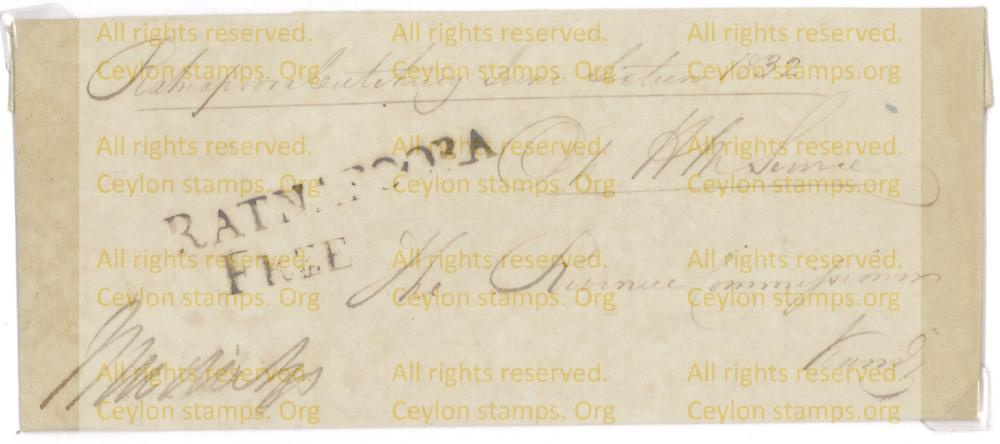 Ratnapoora Cutcherry June Sixteen 1832
On H M Service
RATNAPOORA
FREE
The Revenue Commissioner
Kandy
All rights reserved. All rights reserved. All rights reserved.
Ceylon stamps.org Ceylon stamps.org Ceylon stamps.org
All rights reserved. All rights reserved. All rights reserved.
Ceylon stamps.org Ceylon stamps.org Ceylon stamps.org
All rights reserved. All rights reserved. All rights reserved.
Ceylon stamps. Org Ceylon stamps. Org Ceylon stamps. Org
All rights reserved. All rights reserved. All rights reserved.
Ceylon stamps. Org Ceylon stamps. Org Ceylon stamps. Org